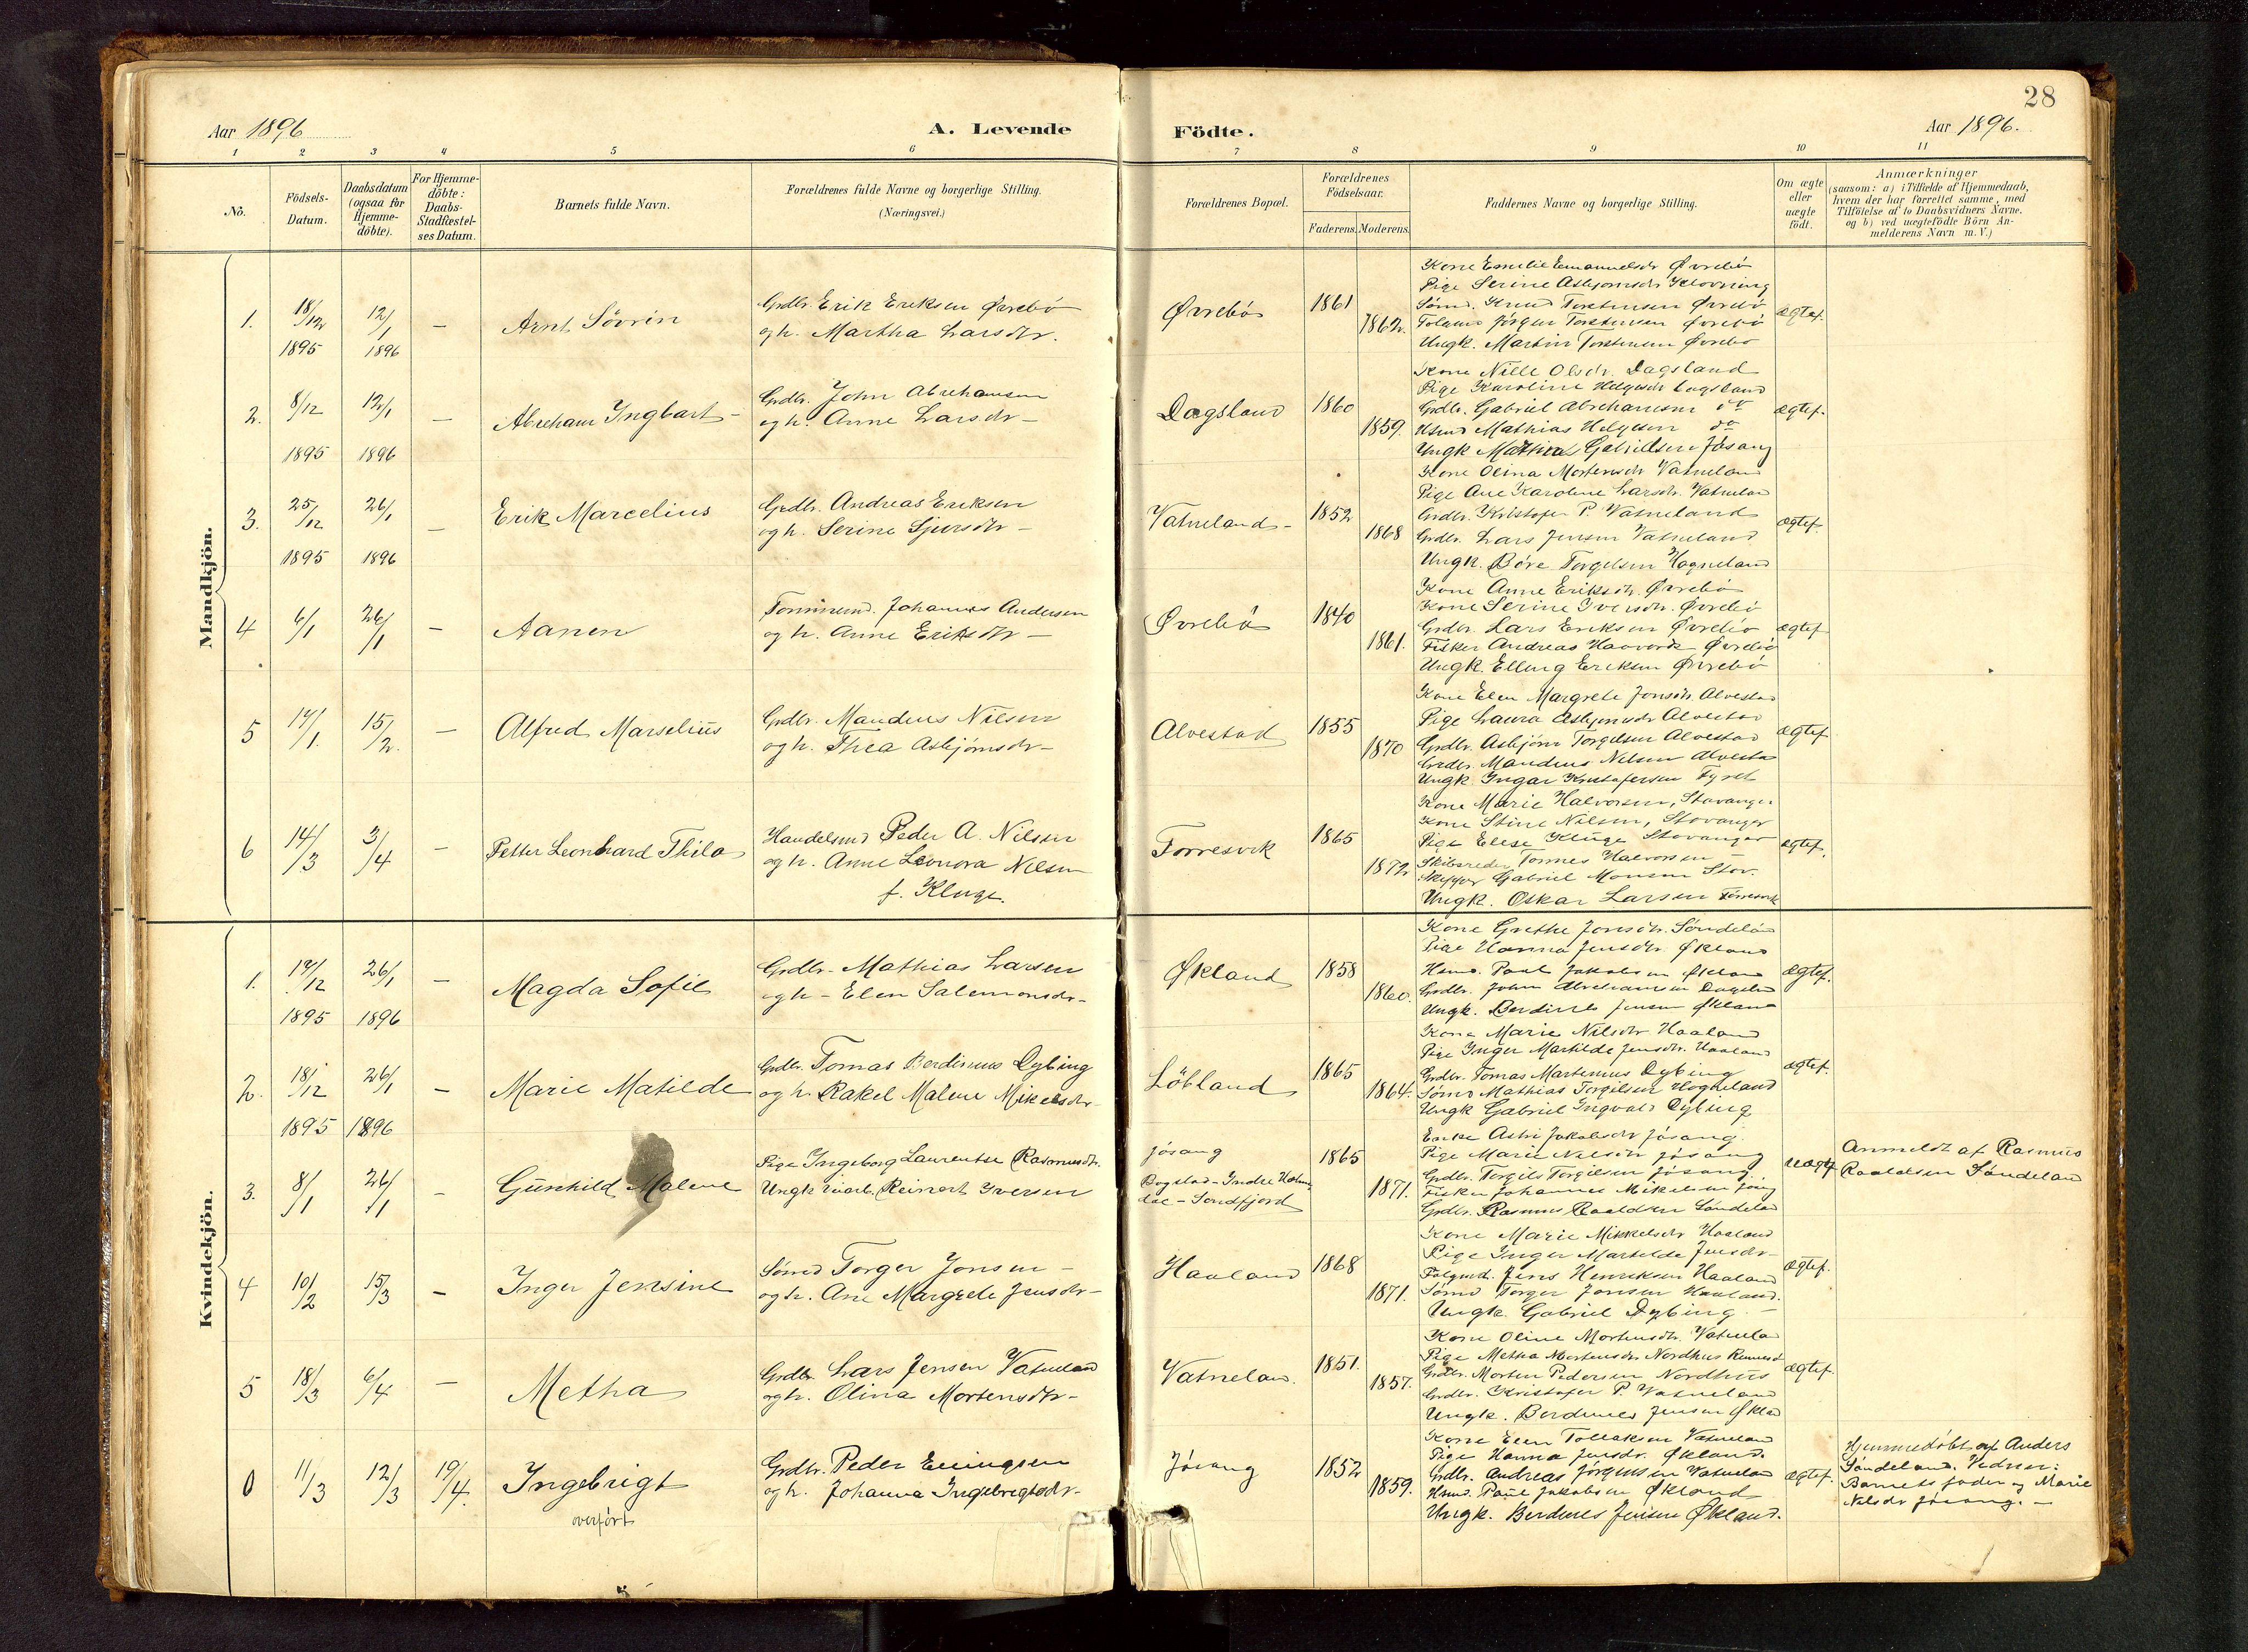 28
Aar 1896
A. Levende
Födte.
Aar 1896.
1 2 3 4 5 6 7 8 9 10 11
No.
Födsels-
Datum.
Daabsdatum
(ogsaa for
Hjemme-
döbte).
For Hjemme-
döbte:
Daabs-
Stadfæstel-
ses Datum.
Barnets fulde Navn.
Forældrenes fulde Navne og borgerlige Stilling.
(Næringsvei.)
Forældrenes Bopæl.
Forældrenes
Födselsaar.
Faderens. Moderens.
Faddernes Navne og borgerlige Stilling.
Om ægte
eller
uægte
födt.
Anmærkninger
(saasom: a) i Tilfælde af Hjemmedaab,
hvem der har forrettet samme, med
Tilföielse af to Daabsvidners Navne,
og b) ved uægtefödte Börn An-
melderens Navn m. V.)
Mandkjön.
1. 18/12 1895 12/1 1896 – Arnt Sövrin
Grdbr. Erik Eriksen Øvrebö
og h. Martha Larsdtr.
Øvrebö 1861 1862.
Kone Emilie Emanuelsdr Øvrebö
Pige Serine Asbjornsdr Klovning
Sömd. Knud Torstensen Øvrebö
Jörgen Torstensen Øvrebö
Ungk. Martin Torstensen Øvrebö
ægtef.
2. 8/12 1895 12/1 1896 – Abreham Ingbart –
Grdbr. John Abrehamsen
og h. Anne Larsdr –
Dagsland 1860 1859.
Kone Nille Olsdr. Dagsland
Pige Karoline Helgesdr Dagsland
Grdbr. Gabriel Abrehamsen do
Hsmd Mathias Helgesen do
Ungk Mathias Gabrielsen Jösang
ægtef.
3. 25/12 1895 26/1 1896 – Erik Marcelius
Grdbr. Andreas Eriksen
og h. Serine Sjursdtr –
Vatneland – 1852 1868
Kone Olina Mortensdr Vatneland
Pige Ane Karoline Larsdr. Vatneland
Grdbr. Kristofer P. Vatneland
Grdbr. Lars Jensen Vatneland
Ungk. Böre Torgelsen Hogneland
ægtef.
4 6/1 26/1 – Aanen
Johannes Andersen
og h. Anne Eriksdtr –
Øvrebö 1840 1861.
Kone Anne Eriksdr. Øvrebö
Kone Serine Iversdr. Øvrebö
Grdbr. Lars Eriksen Øvrebö
Fisker Andreas Haavorsk Øvrebö
Ungk Elling Eriksen Øvrebö
ægtef
5 17/1. 15/2. – Alfred Marselius
Grdbr. Maudeus Nilsen
og h. Thea Asbjörnsdr –
Alvestad 1855 1870
Kone Elen Margrete Jonsdr Alvestad
Pige Laura Asbjörnsdr Alvestad
Grdbr. Asbjörn Torgilsen Alvestad
Grdbr. Maudeus Nilsen Alvestad
Ungk Ingar Kristofersen
ægtef
6 14/3 3/4 – Petter Leonhard Thilo
Handelsmd Peder A. Nilsen
og h. Anne Leonora Nilsen
f. Kluge.
Torresvik 1865 1872
Kone Marie Halvorsen, Stavanger
Kone Stine Nilsen, Stavanger
Pige Elise Kluge Stavanger
Skibsreder Tonnes Halvorsen –
Skipper Gabriel Monsen Stav.
Ungk. Oskar Larsen Torresvik
ægtef.
Kvindekjön.
1. 17/12 1895 26/1 1896 – Magda Sofie
Grdbr – Mathias Larsen
og h – Elen Salemonsdr –
Økland 1858 1860.
Kone Grethe Jonsdr. Söndeland
Pige Hanna Jensdr. Økland
Hsmd. Paul Jakobsen Økland
Grdbr. John Abrehamsen Dagsland
Ungk. Berdines Jensen Økland
ægtef.
2. 18/12 1895 26/1 1896 – Marie Matilde
Grdbr. Tomas Berdinius Dybing
og h. Rakel Malene Mikelsdr –
Löbland 1865 1864.
Kone Marie Nilsdr Haaland
Pige Inger Martilde Jensdr. Haaland
Grdbr. Tomas Martinius Dybing
Sömd Mathias Torgilsen Hogneland
Ungk Gabriel Ingvald Dybing
ægtef.
3. 8/1 26/1 – Gunhild Malene
Pige Ingeborg Laurentse Rasmusdtr.
Ungk Reinert Iversen
Jösang
dal – Sondfjord
1865 1871.
Enke Astri Jakobsdr Jösang
Pige Marie Nilsdr Jösang
Grdbr. Torgils Torgilsen Jösang
Fisker Johannes Mikelsen
Grdbr. Rasmus Raaldsen Söndeland
uægtf
Anmeldt af Rasmus
Raaldsen Söndeland
4 10/2 15/3 – Inger Jensine
Sömd Torger Jonsen –
og h. Ane Margrete Jensdr –
Haaland 1868 1871.
Kone Marie Mikkelsdr Haaland
Pige Inger Martilde Jensdr –
Jens Henriksen Haaland
Sömd Torger Jonsen Haaland.
Ungk. Gabriel Dybing. –
ægtef.
5 18/3 6/4 – Metha
Grdbr. Lars Jensen Vatneland
og h. Olina Mortensdtr –
Vatneland. 1851. 1857.
Kone Oline Mortensdr. Vatneland
Pige Metha Mortensdr Nordhus Rennesö
Grdbr. Morten Pedersen Nordhus
Grdbr. Kristofer P. Vatneland
Ungk. Berdines Jensen Økland
ægtef.
0 11/3 12/3 19/4. Ingebrigt
overfört
Grdbr. Peder Ellingsen
og h. Johanna Ingebrigtsdr –
Jösang 1852 1859.
Kone Elen Tollaksen Vatneland
Pige Hanna Jensdr. Økland.
Grdbr. Andreas Jörgensen Vatneland
Hsmd. Paul Jakobsen Økland
Ungk. Berdines Jensen Økland.
ægtef.
Hjemmedöbt af Anders
Söndeland. Vidner:
Barnets fader og Marie
Nilsdr Jösang. –